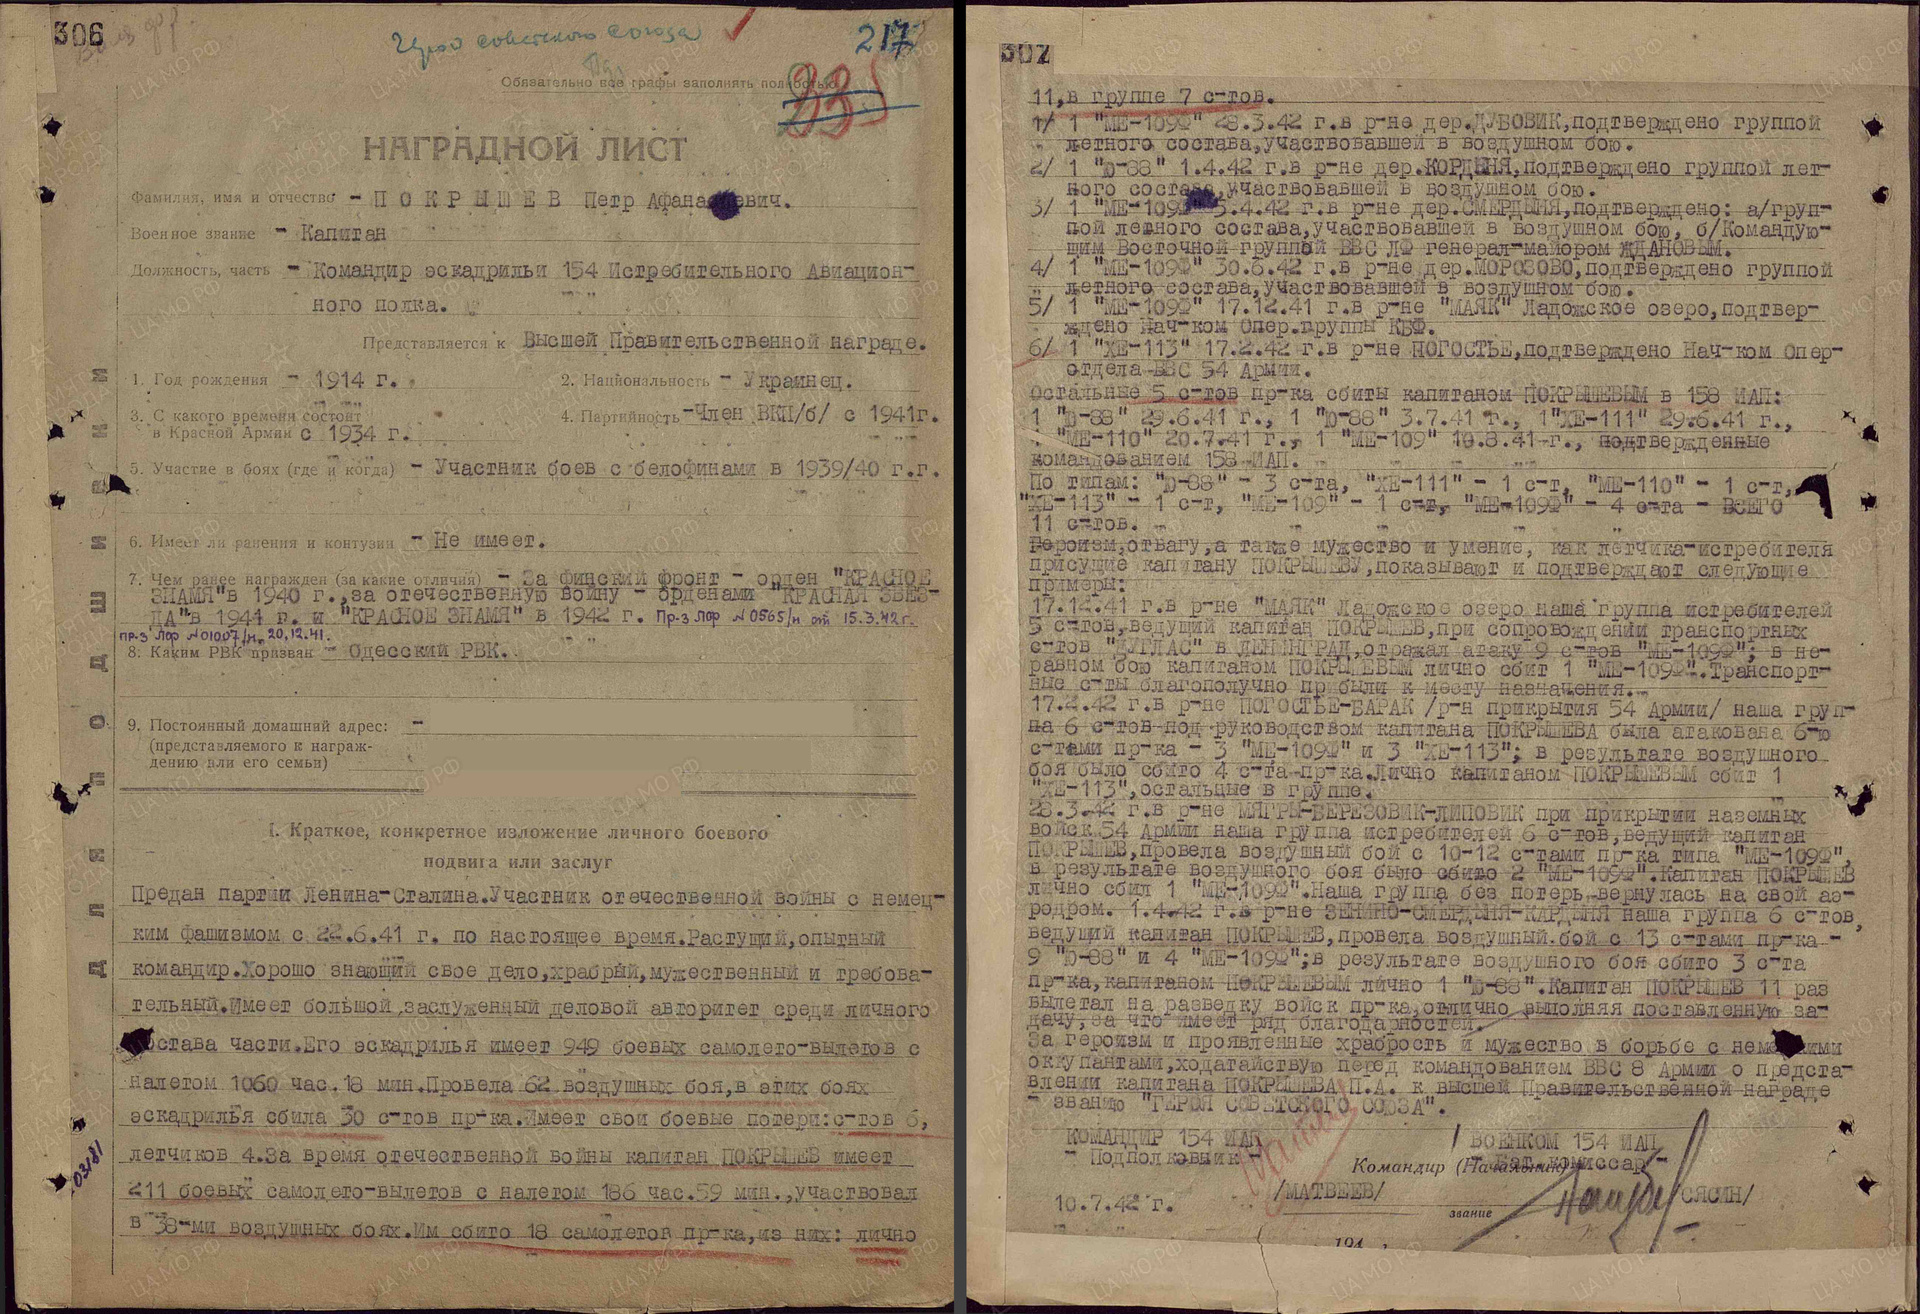 306
Героя советского союза
217
Обязательно все графы заполнять полностью
НАГРАДНОЙ ЛИСТ
Фамилия, имя и отчество - ПОКРЫШЕВ Петр Афанасьевич.
Военное звание - Капитан
Должность, часть - Командир эскадрильи 154 Истребительного Авиацион-
ного полка.
Представляется к Высшей Правительственной награде.
1. Год рождения - 1914 г. 2. Национальность - Украинец.
3. С какого времени состоит
в Красной Армии с 1934 г. 4. Партийность - Член ВКП/б/ с 1941г.
5. Участие в боях (где и когда) - Участник боев с белофинами в 1939/40 г.г.
6. Имеет ли ранения и контузии - Не имеет.
7. Чем ранее награжден (за какие отличия) - За финский фронт - орден "КРАСНОЕ
ЗНАМЯ" в 1940 г., за отечественную войну - орденами "КРАСНАЯ ЗВЕЗ-
ДА" в 1941 г. и "КРАСНОЕ ЗНАМЯ" в 1942 г. Пр-з ЛФ № 0565/н от 15.3.42г.
пр-з ЛФ № 01007/н. 20.12.41.
8. Каким РВК призван - Одесский РВК.
9. Постоянный домашний адрес: -
(представляемого к награж-
дению или его семьи)
I. Краткое, конкретное изложение личного боевого
подвига или заслуг
Предан партии Ленина-Сталина.Участник отечественной войны с немец-
ким фашизмом с 22.6.41 г. по настоящее время.Растущий,опытный
командир.Хорошо знающий свое дело,храбрый,мужественный и требова-
тельный.Имеет большой,заслуженный деловой авторитет среди личного
состава части.Его эскадрилья имеет 949 боевых самолето-вылетов с
налетом 1060 час.18 мин.Провела 62 воздушных боя,в этих боях
эскадрилья сбила 30 с-тов пр-ка.Имеет свои боевые потери:с-тов 6,
летчиков 4.За время отечественной войны капитан ПОКРЫШЕВ имеет
211 боевых самолето-вылетов с налетом 186 час.59 мин.,участвовал
в 38-ми воздушных боях.Им сбито 18 самолетов пр-ка,из них: лично
Для подшивки
03181
307
11,в группе 7 с-тов.
1/ 1 "МЕ-109Ф" 28.3.42 г.в р-не дер.ДУБОВИК,подтверждено группой
летного состава,участвовавшей в воздушном бою.
2/ 1 "Ю-88" 1.4.42 г.в р-не дер.КОРДЫНЯ,подтверждено группой лет-
ного состава,участвовавшей в воздушном бою.
3/ 1 "МЕ-109Ф" 5.4.42 г.в р-не дер.СМЕРДЫНЯ,подтверждено: а/груп-
пой летного состава,участвовавшей в воздушном бою, б/Командую-
щим Восточной группой ВВС ЛФ генерал-майором ЖДАНОВЫМ.
4/ 1 "МЕ-109Ф" 30.6.42 г.в р-не дер.МОРОЗОВО,подтверждено группой
летного состава,участвовавшей в воздушном бою.
5/ 1 "МЕ-109Ф" 17.12.41 г.в р-не "МАЯК" Ладожское озеро,подтвер-
ждено Нач-ком Опер.группы КБФ.
6/ 1 "ХЕ-113" 17.2.42 г.в р-не ПОГОСТЬЕ,подтверждено Нач-ком Опер-
отдела ВВС 54 Армии.
Остальные 5 с-тов пр-ка сбиты капитаном ПОКРЫШЕВЫМ в 158 ИАП:
1 "Ю-88" 29.6.41 г., 1 "Ю-88" 3.7.41 г., 1"ХЕ-111" 29.6.41 г.,
1 "МЕ-110" 20.7.41 г., 1 "МЕ-109" 10.8.41 г., подтвержденные
командованием 158 ИАП.
По типам: "Ю-88" - 3 с-та, "ХЕ-111" - 1 с-т, "МЕ-110" - 1 с-т,
"ХЕ-113" - 1 с-т, "МЕ-109" - 1 с-т, "МЕ-109Ф" - 4 с-та - ВСЕГО
11 с-тов.
Героизм,отвагу,а также мужество и умение, как летчика-истребителя
присущие капитану ПОКРЫШЕВУ,показывают и подтверждают следующие
примеры:
17.12.41 г.в р-не "МАЯК" Ладожское озеро наша группа истребителей
5 с-тов,ведущий капитан ПОКРЫШЕВ,при сопровождении транспортных
с-тов "ДУГЛАС" в ЛЕНИНГРАД,отражал атаку 9 с-тов "МЕ-109Ф"; в не-
равном бою капитаном ПОКРЫШЕВЫМ лично сбит 1 "МЕ-109Ф".Транспорт-
ные с-ты благополучно прибыли к месту назначения.
17.2.42 г.в р-не ПОГОСТЬЕ-БАРАК /р-н прикрытия 54 Армии/ наша груп-
па 6 с-тов под руководством капитана ПОКРЫШЕВА была атакована 6-ю
с-тами пр-ка - 3 "МЕ-109Ф" и 3 "ХЕ-113"; в результате воздушного
боя было сбито 4 с-та пр-ка.Лично капитаном ПОКРЫШЕВЫМ сбит 1
"ХЕ-113",остальцые в группе.
28.3.42 г.в р-не МЯГРЫ-БЕРЕЗОВИК-ЛИПОВИК при прикрытии наземных
войск 54 Армии наша группа истребителей 6 с-тов,ведущий капитан
ПОКРЫШЕВ,провела воздушный бой с 10-12 с-тами пр-ка типа "МЕ-109Ф",
в результате воздушного боя было сбито 2 "МЕ-109Ф".Капитан ПОКРЫШЕВ
лично сбил 1 "МЕ-109Ф".Наша группа без потерь вернулась на свой аэ-
родром. 1.4.42 г.в р-не ЗЕНИНО-СМЕРДЫНЯ-КАРДЫНЯ наша группа 6 с-тов,
ведущий капитан ПОКРЫШЕВ,провела воздушный бой с 13 с-тами пр-ка -
9 "Ю-88" и 4 "МЕ-109Ф";в результате воздушного боя сбито 3 с-та
пр-ка,капитаном ПОКРЫШЕВЫМ лично 1 "Ю-88".Капитан ПОКРЫШЕВ 11 раз
вылетал на разведку войск пр-ка,отлично выполняя поставленную за-
дачу,за что имеет ряд благодарностей.
За героизм и проявленные храбрость и мужество в борьбе с немецкими
оккупантами,ходатайствую перед командованием ВВС 8 Армии о предста-
влении капитана ПОКРЫШЕВА П.А. к высшей Правительственной награде
- званию "ГЕРОЯ СОВЕТСКОГО СОЮЗА".
КОМАНДИР 154 ИАП ВОЕНКОМ 154 ИАП
- Подполковник - - Бат.комиссар -
Командир (Начальник)
/МАТВЕЕВ/ /СЯСИН/
10.7.42 г.
звание
194